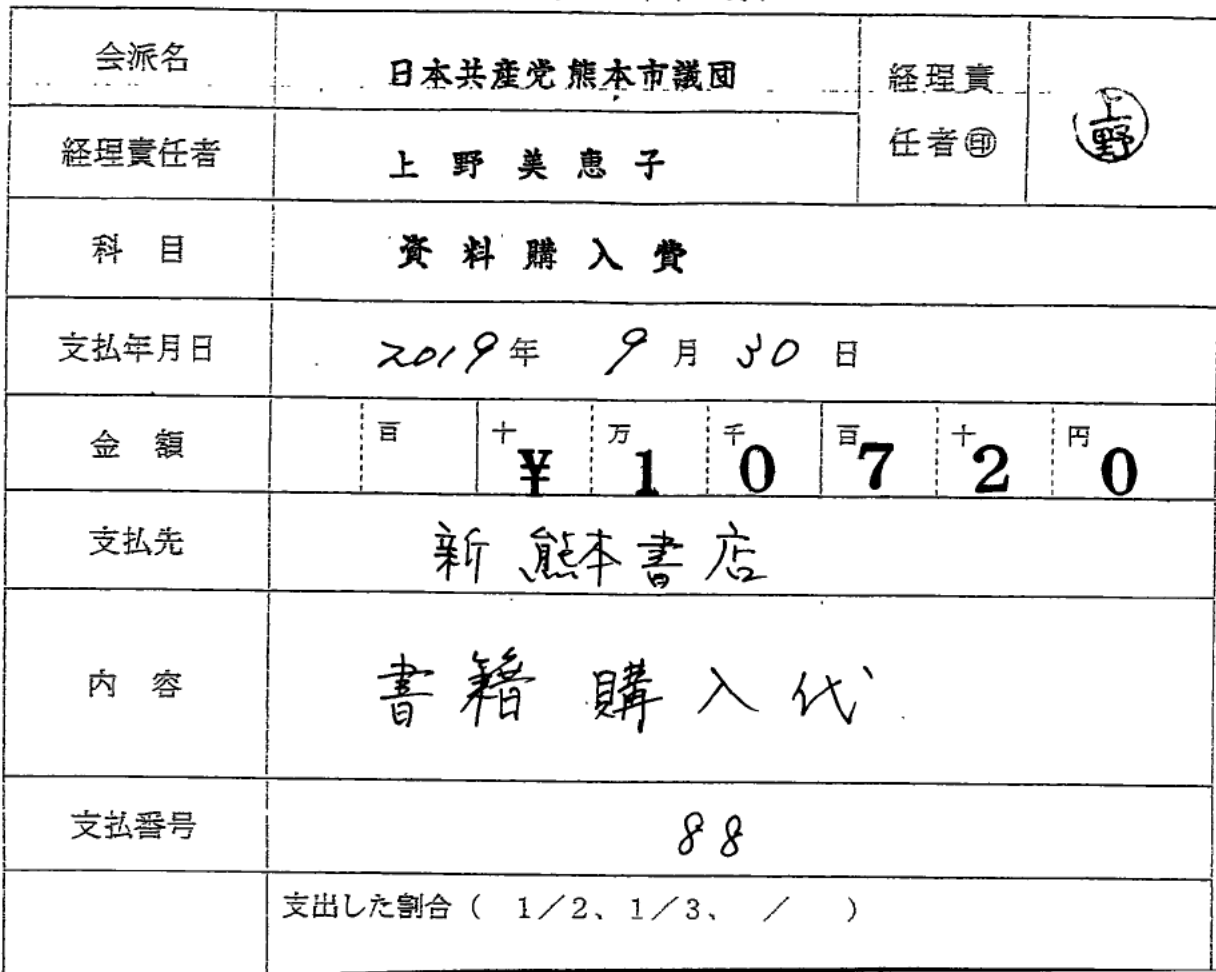 会派名 日本共産党熊本市議団 経理責任者㊞ 上野
経理責任者 上野美恵子
科目 資料購入費
支払年月日 2019年 9月 30日
金額 百 十 ¥ 万 1 千 0 百 7 十 2 円 0
支払先 新熊本書店
内容 書籍購入代
支払番号 88
支出した割合( 1/2、1/3、 / )